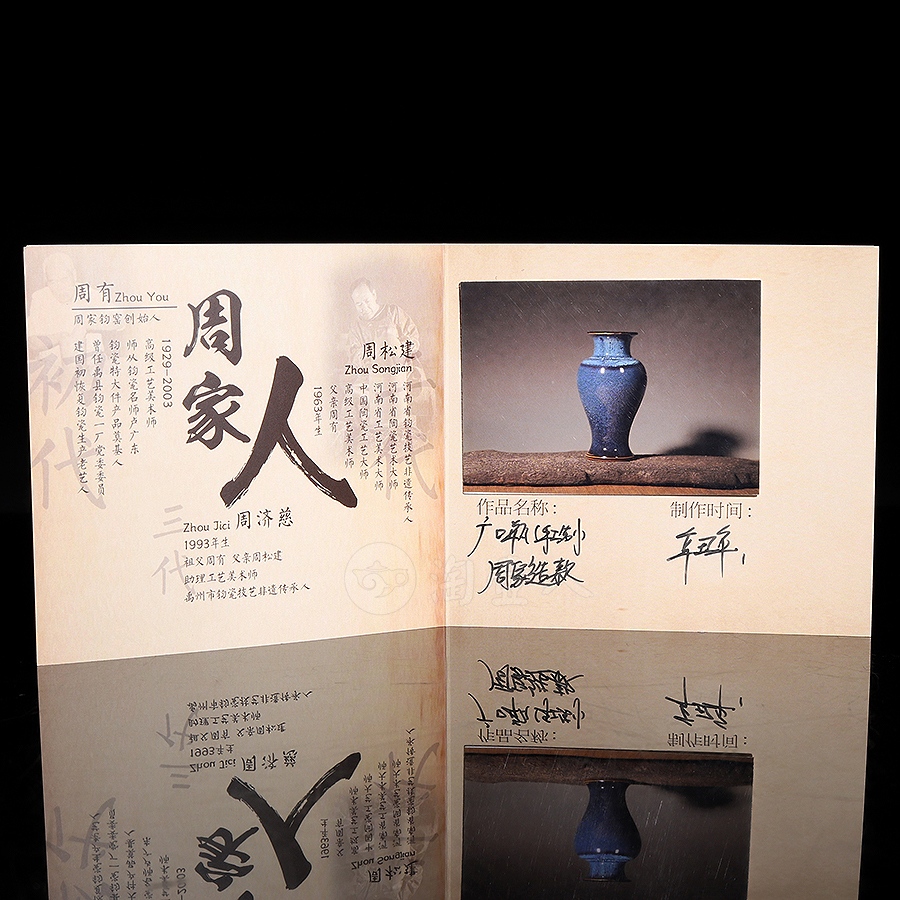 周有 Zhou You
周家钧窑创始人
1929-2003
高级工艺美术师
师从钧瓷名师卢广东
钧瓷特大件产品奠基人
曾任禹县钧瓷一厂党委委员
建国初恢复钧瓷生产老艺人
初代
周家人
周松建
Zhou Songjian
河南省钧瓷技艺非遗传承人
河南省陶瓷艺术大师
河南省工艺美术大师
中国陶瓷工艺大师
高级工艺美术师
父亲周有
1963年生
三代
Zhou Jici 周济慈
1993年生
祖父周有 父亲周松建
助理工艺美术师
禹州市钧瓷技艺非遗传承人
作品名称：
周家造款
制作时间：